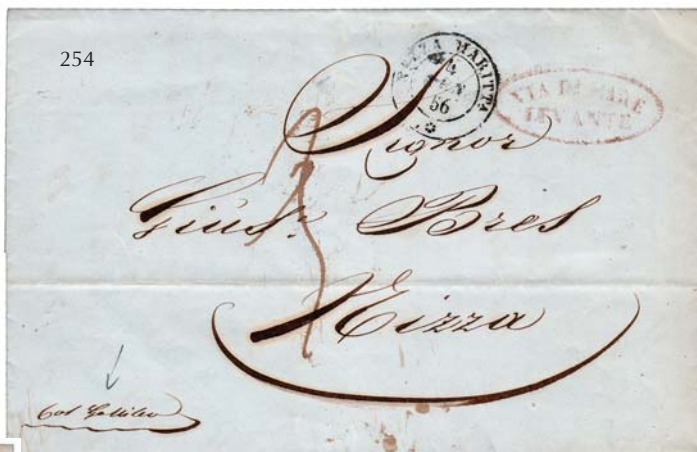 254
NIZZA MARITTA
56
VIA DI MARE
LEVANTE
Signor
Gius: Bres
Nizza
Col Galileo